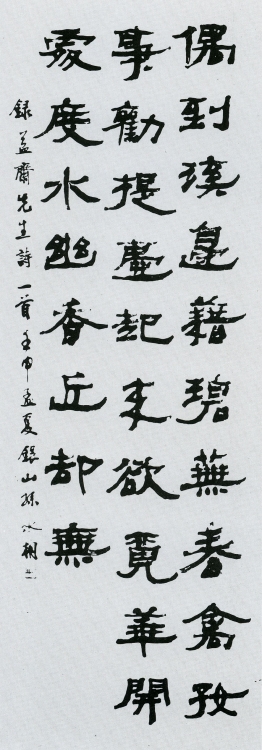 偶到溪邊籍碧蕪春禽好
事勸提壺起來欲覓華開
處度水幽香近却無
錄益齋先生詩一首壬申孟夏山孫